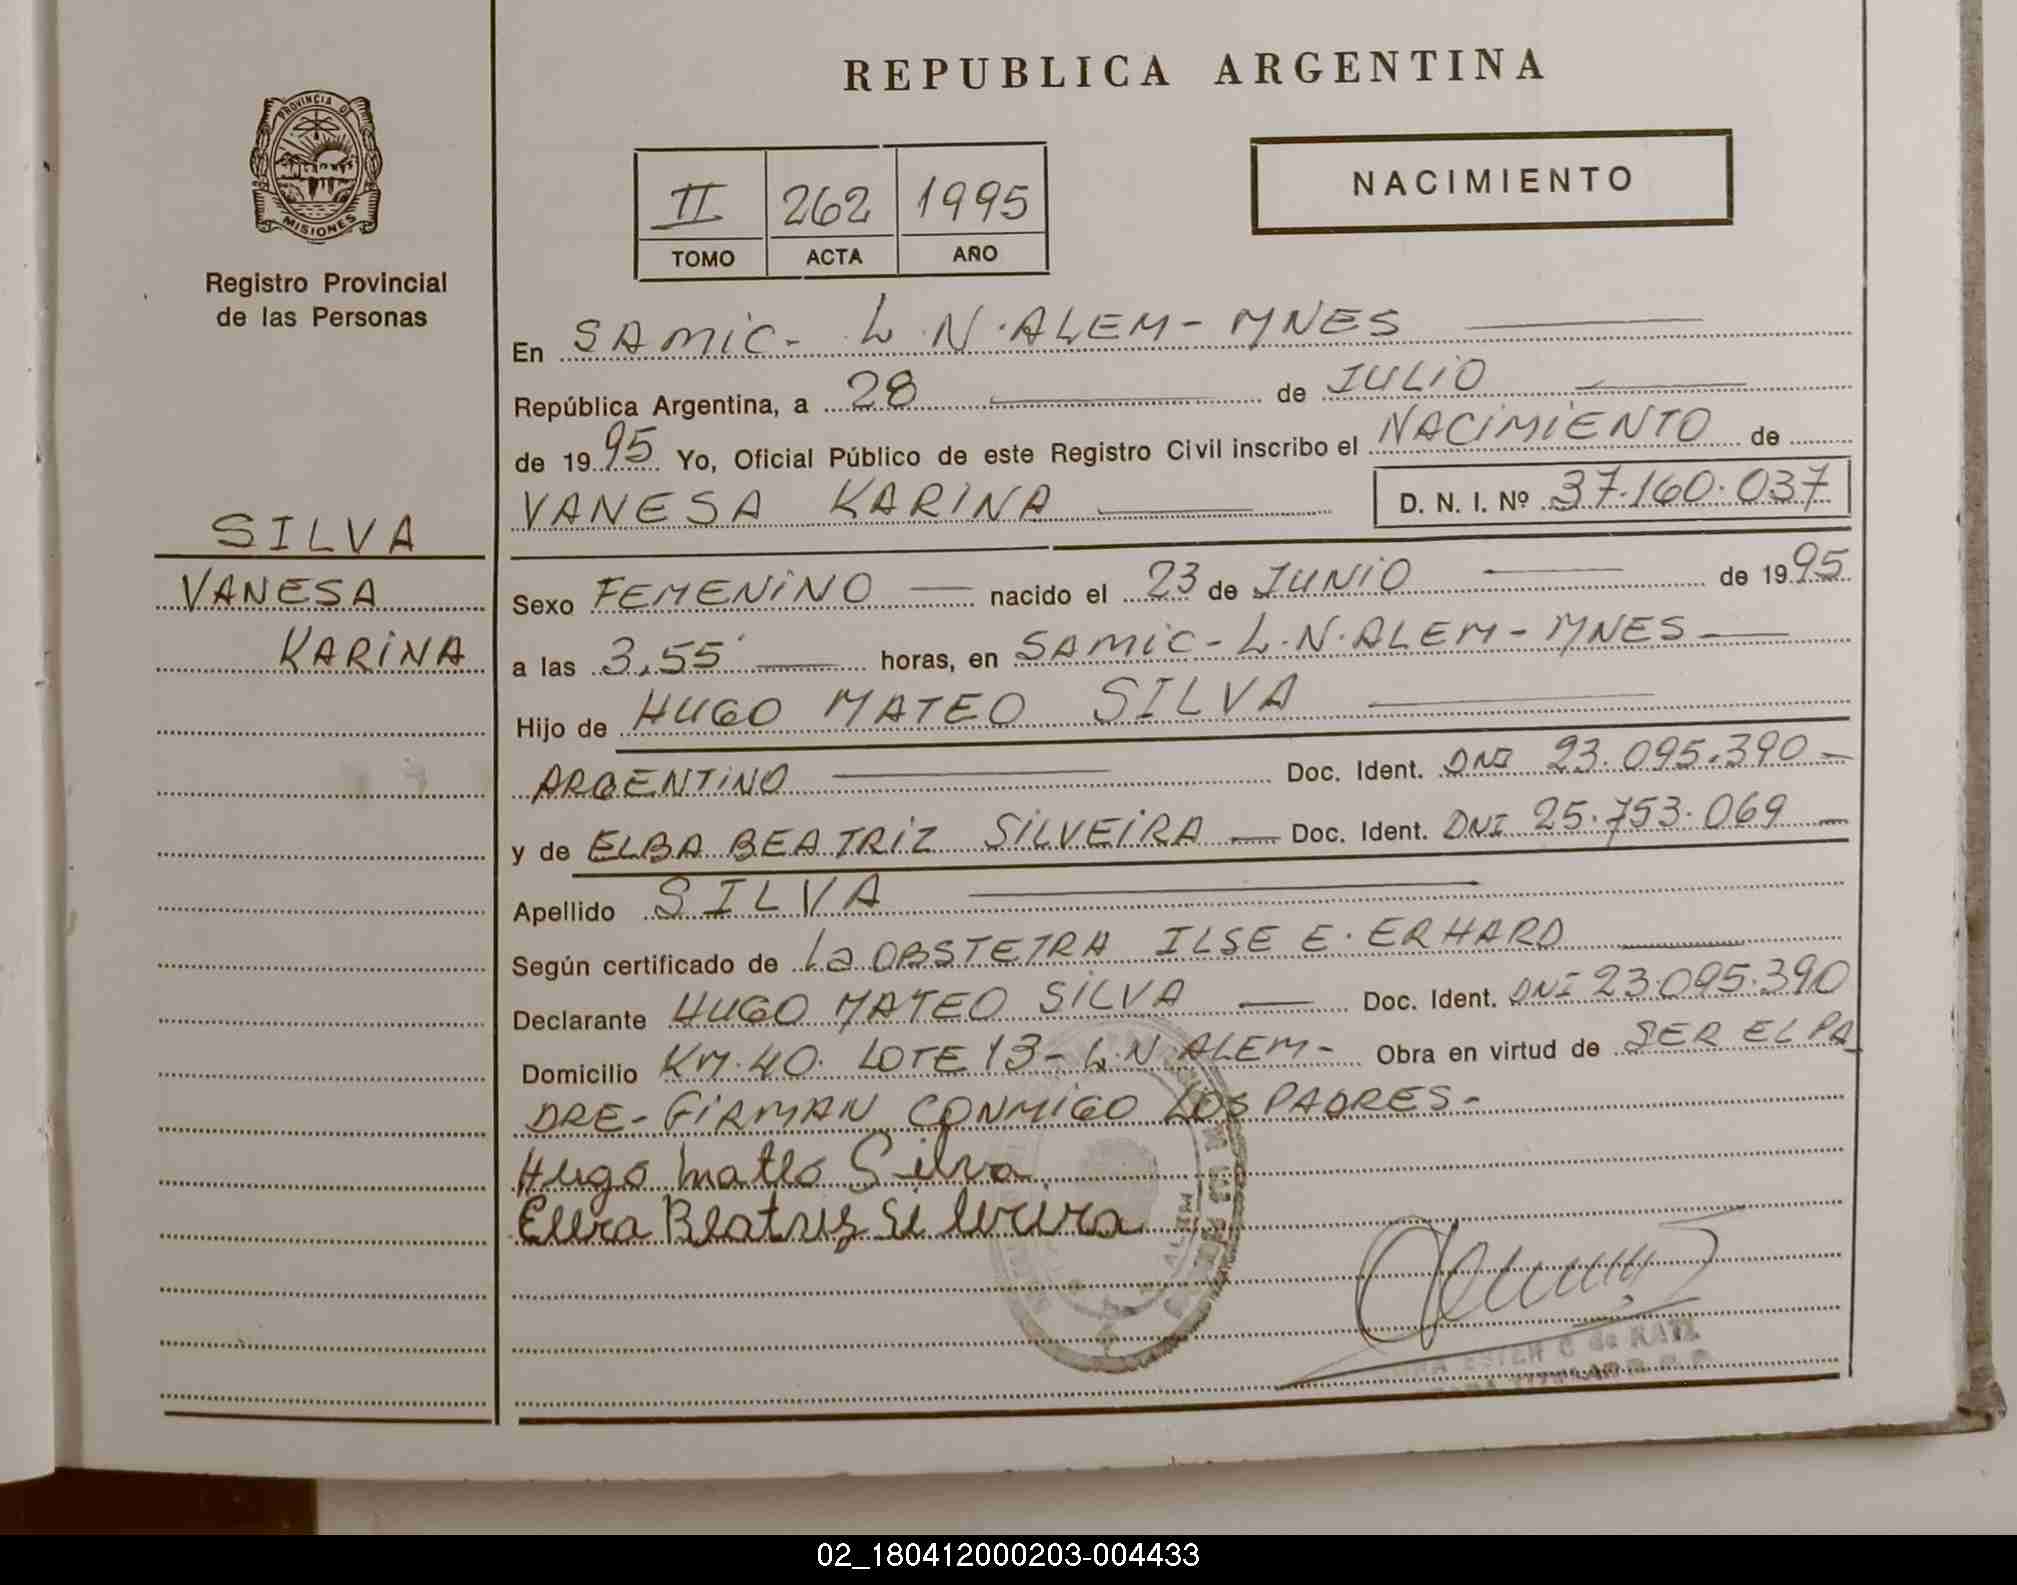 REPUBLICA ARGENTINA
PROVINCIA DE
MISIONES
Registro Provincial
de las Personas
II 262 1995
TOMO ACTA AÑO
NACIMIENTO
En SAMIC- L.N.ALEM-MNES
República Argentina, a 28 de JULIO
de 1995 Yo, Oficial Público de este Registro Civil inscribo el NACIMIENTO de
VANESA KARINA D. N. I. Nº 37.160.037
SILVA
VANESA
KARINA
Sexo FEMENINO nacido el 23 de JUNIO de 1995
a las 3,55' horas, en SAMIC-L.N.ALEM-MNES-
Hijo de HUGO MATEO SILVA
ARGENTINO Doc. Ident. DNI 23.095.390-
y de ELBA BEATRIZ SILVEIRA - Doc. Ident. DNI 25.753.069 -
Apellido SILVA
Según certificado de La OBSTETRA ILSE E. ERHARD
Declarante HUGO MATEO SILVA Doc. Ident. DNI 23.095.390
Domicilio KM.40. LOTE 13-L.N ALEM- Obra en virtud de SER EL PA_
DRE- FIRMAN CONMIGO LOS PADRES-
Hugo Mateo Silva
Beatriz Silveira
ESTER C de RATX
02_180412000203-004433